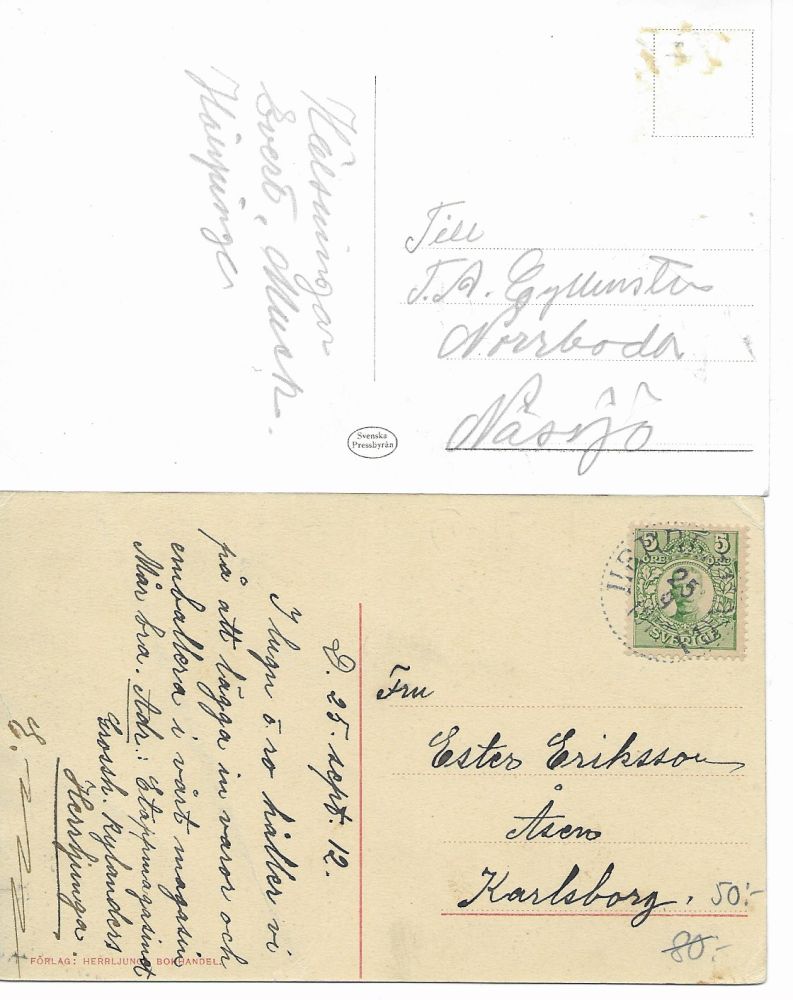 Hälsningar
Evert, Munck.
Till
T.A. Gyllensten
Norrboda
Nässjö
Svenska
Pressbyrån
D. 25. sept. 12.
I lugn o. ro håller vi
på att lägga in varor och
emballera i vårt magasin
Mår bra. Adr.: Etappmagasinet
Grossh. Rylanders
Herrljunga.
FÖRLAG: HERRLJUNGA BOKHANDEL.
5 5
ÖRE
SVERIGE
25
9
Fru
Ester Eriksson
Åsen
Karlsborg.
50:-
80:-